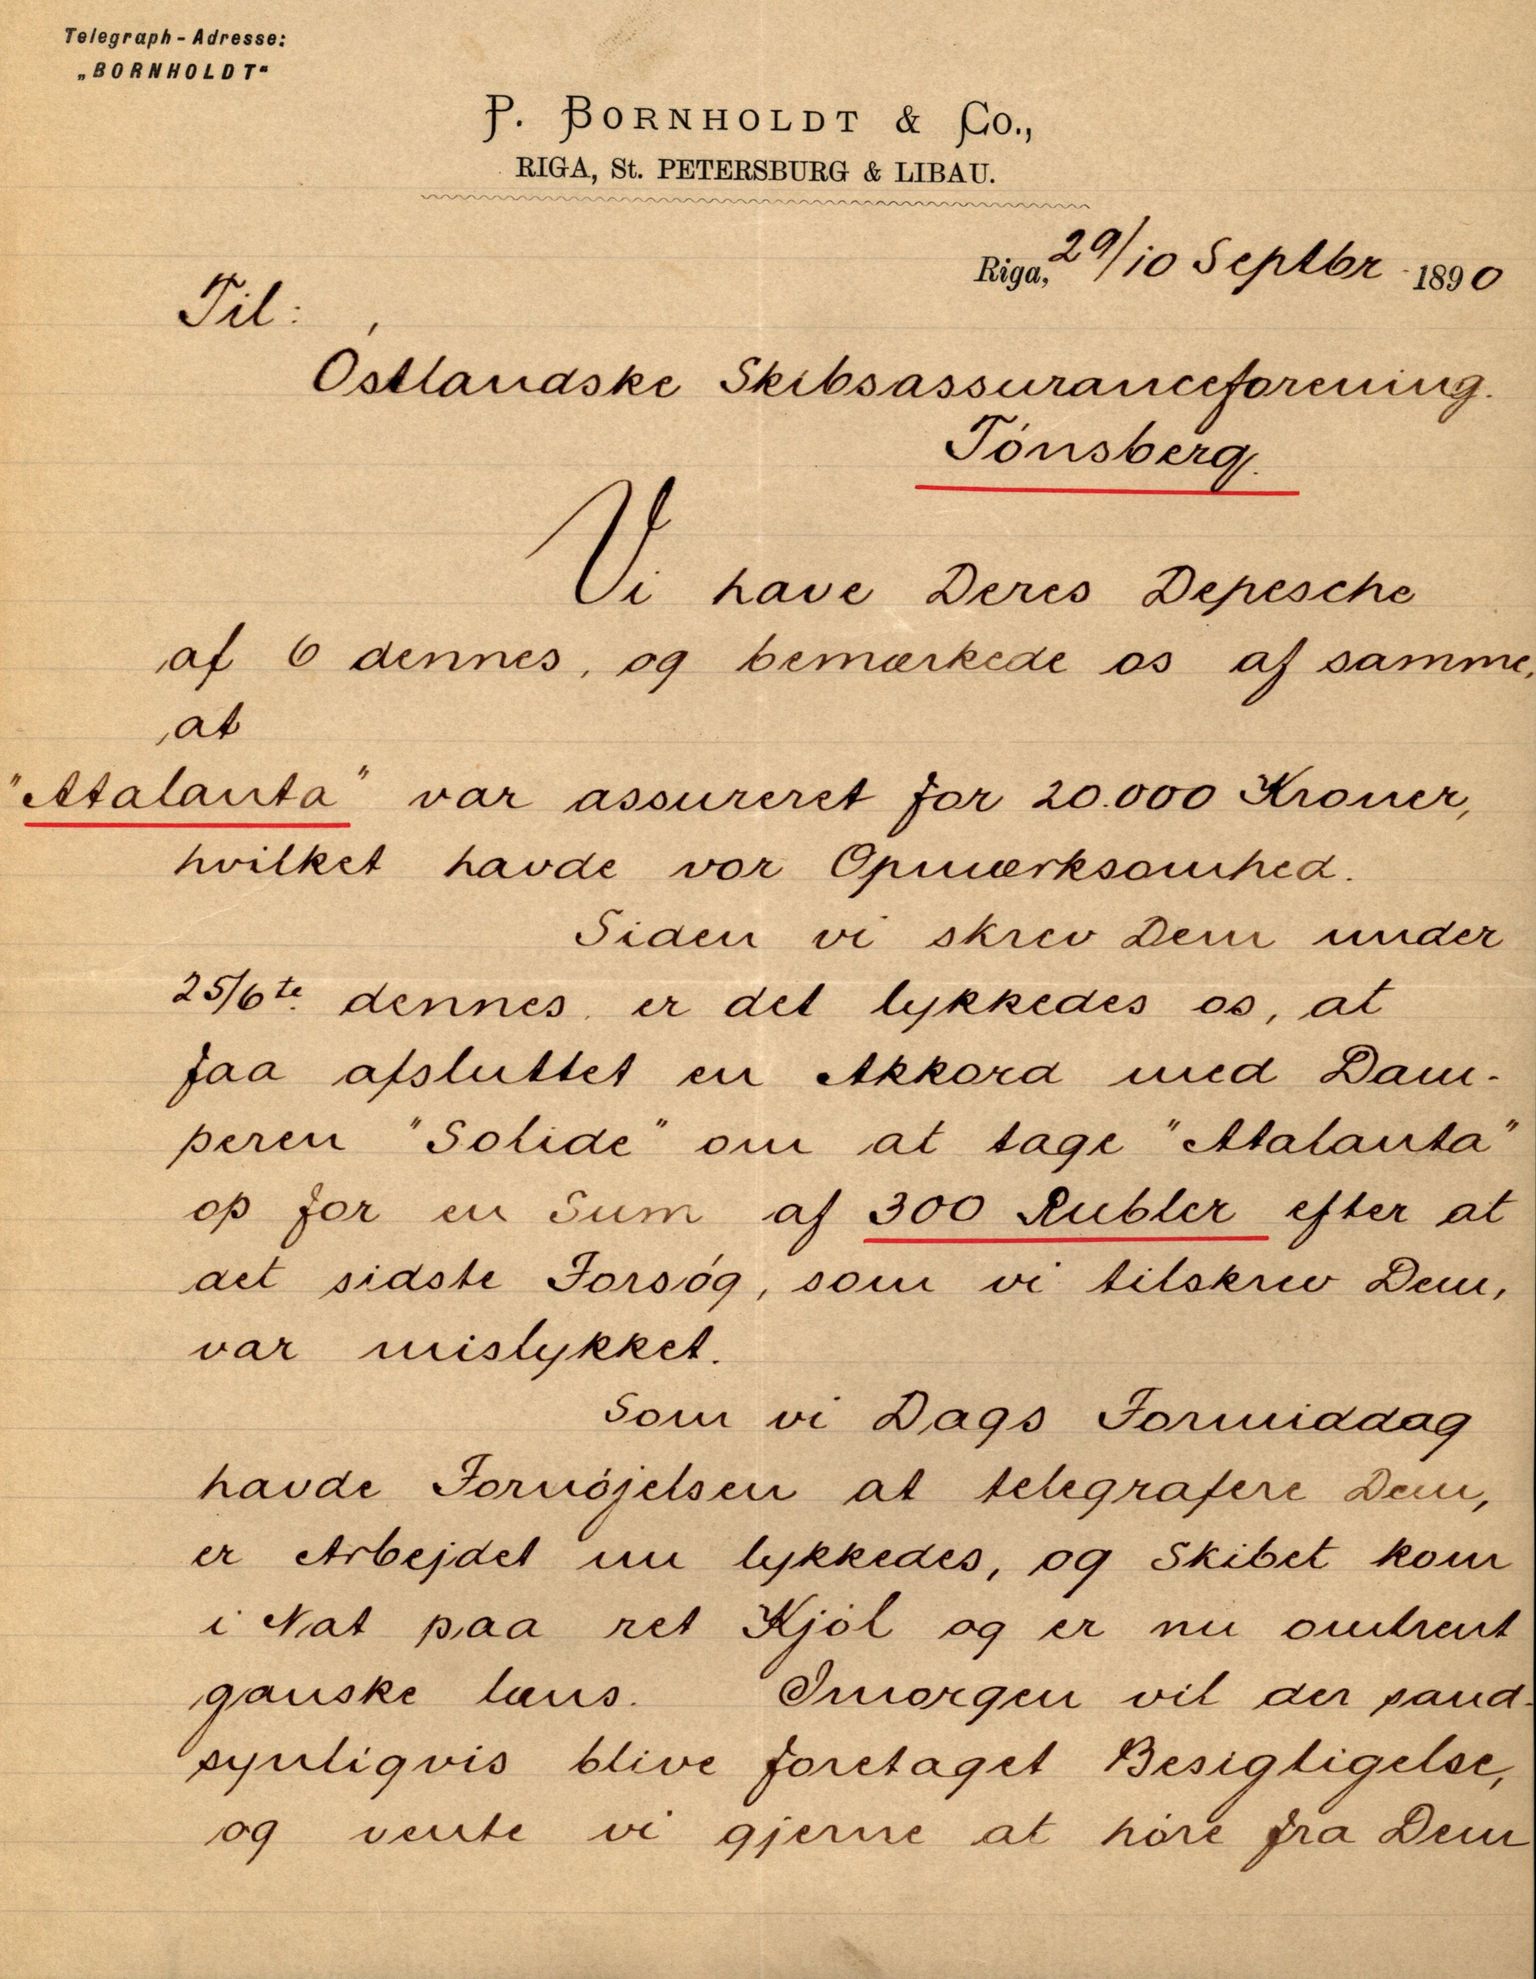 Telegraph-Adresse:
„BORNHOLDT“
P. BORNHOLDT & Co.,
RIGA, St. PETERSBURG & LIBAU.
Riga, 29/10 Septbr 1890
Til:
Óstlandske Skibsassuranceforening.
Tónsberg.
Vi have Deres Depesche
af 6 dennes, og bemærkede os af samme,
at
"Atalanta" var assureret for 20.000 Kroner,
hvilket havde vor Opmærksomhed.
Siden vi skrev Dem under
25/6te. dennes er det lykkedes os, at
faa afsluttet en Akkord med Dam-
peren "Solide" om at tage "Atalanta"
op for en Sum af 300 Rubler efter at
det sidste Forsóg, som vi tilskrev Dem,
var mislykket.
Som vi Dags Formiddag
havde Fornójelsen at telegrafere Dem,
er Arbejdet nu lykkedes, og Skibet kom
i Nat paa ret Kjól og er nu omtrent
ganske læns. Imorgen vil der sand-
synligvis blive foretaget Besigtigelse,
og vente vi gjerne at hóre fra Dem